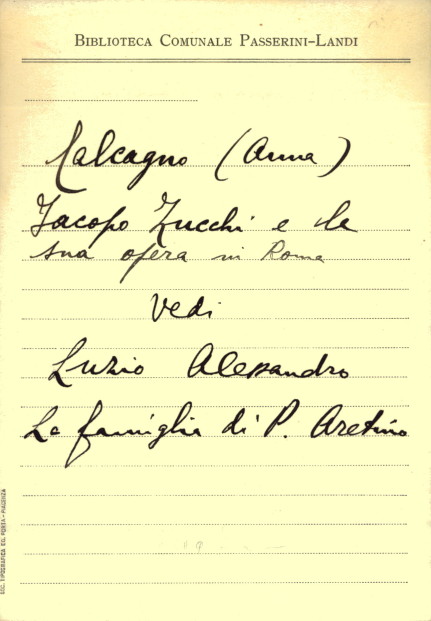 BIBLIOTECA COMUNALE PASSERINI-LANDI
Calcagno (Anna)
Jacopo Zucchi e la
sua opera in Roma
Vedi
Luzio Alessandro
La famiglia di P. Aretino
SOC. TIPOGRAFICA ED. PORTA - PIACENZA